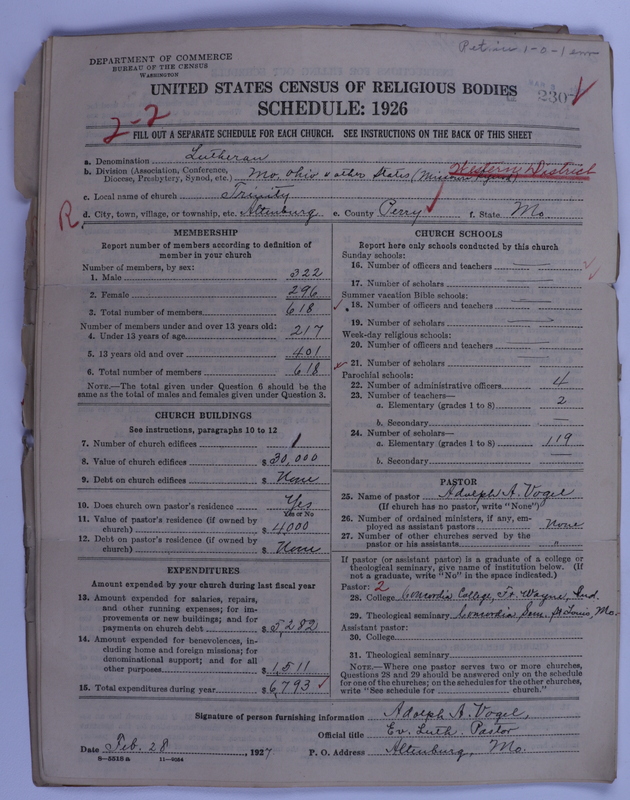 DEPARTMENT OF COMMERCE
BUREAU OF THE CENSUS
WASHINGTON
230
UNITED STATES CENSUS OF RELIGIOUS BODIES
SCHEDULE: 1926
2-2
FILL OUT A SEPARATE SCHEDULE FOR EACH CHURCH. SEE INSTRUCTIONS ON THE BACK OF THIS SHEET
a. Denomination Lutheran
b. Division (Association, Conference, Diocese, Presbytery, Synod, etc.) Mo. Ohio & other States (Missouri Synod) Western District
c. Local name of church Trinity
R
d. City, town, village, or township, etc. Altenburg e. County Perry f. State Mo.
MEMBERSHIP
Report number of members according to definition of
member in your church
Number of members, by sex:
1. Male 322
2. Female 296
3. Total number of members 618
Number of members under and over 13 years old:
4. Under 13 years of age 217
5. 13 years old and over 401
6. Total number of members 618
NOTE.—The total given under Question 6 should be the
same as the total of males and females given under Question 3.
CHURCH BUILDINGS
See instructions, paragraphs 10 to 12
7. Number of church edifices 1
8. Value of church edifices $ 30,000
9. Debt on church edifices $ None
10. Does church own pastor's residence Yes
Yes or No
11. Value of pastor's residence (if owned by
church) $ 4000
12. Debt on pastor's residence (if owned by
church) $ None
EXPENDITURES
Amount expended by your church during last fiscal year
13. Amount expended for salaries, repairs,
and other running expenses; for im-
provements or new buildings; and for
payments on church debt $ 5282
14. Amount expended for benevolences, in-
cluding home and foreign missions; for
denominational support; and for all
other purposes $ 1,511
15. Total expenditures during year $ 6,793
CHURCH SCHOOLS
Report here only schools conducted by this church
Sunday schools:
16. Number of officers and teachers
17. Number of scholars
Summer vacation Bible schools:
18. Number of officers and teachers
19. Number of scholars
Week-day religious schools:
20. Number of officers and teachers
21. Number of scholars
Parochial schools:
22. Number of administrative officers 4
23. Number of teachers—
a. Elementary (grades 1 to 8) 2
b. Secondary —
24. Number of scholars—
a. Elementary (grades 1 to 8) 119
b. Secondary —
PASTOR
25. Name of pastor Adolph A. Vogel
(If church has no pastor, write "None")
26. Number of ordained ministers, if any, em-
ployed as assistant pastors None
27. Number of other churches served by the
pastor or his assistants "
If pastor (or assistant pastor) is a graduate of a college or
theological seminary, give name of institution below. (If
not a graduate, write "No" in the space indicated.)
Pastor: 2
28. College Concordia College, Ft. Wayne, Ind.
29. Theological seminary Concordia Sem. St Louis, Mo.
Assistant pastor:
30. College
31. Theological seminary
NOTE.—Where one pastor serves two or more churches,
Questions 28 and 29 should be answered only on the schedule
for one of the churches; on the schedules for the other churches,
write "See schedule for church."
Signature of person furnishing information Adolph A. Vogel,
Official title Ev. Luth. Pastor
Date Feb. 28, 1927 P. O. Address Altenburg, Mo.
8-5318 a 11-9034